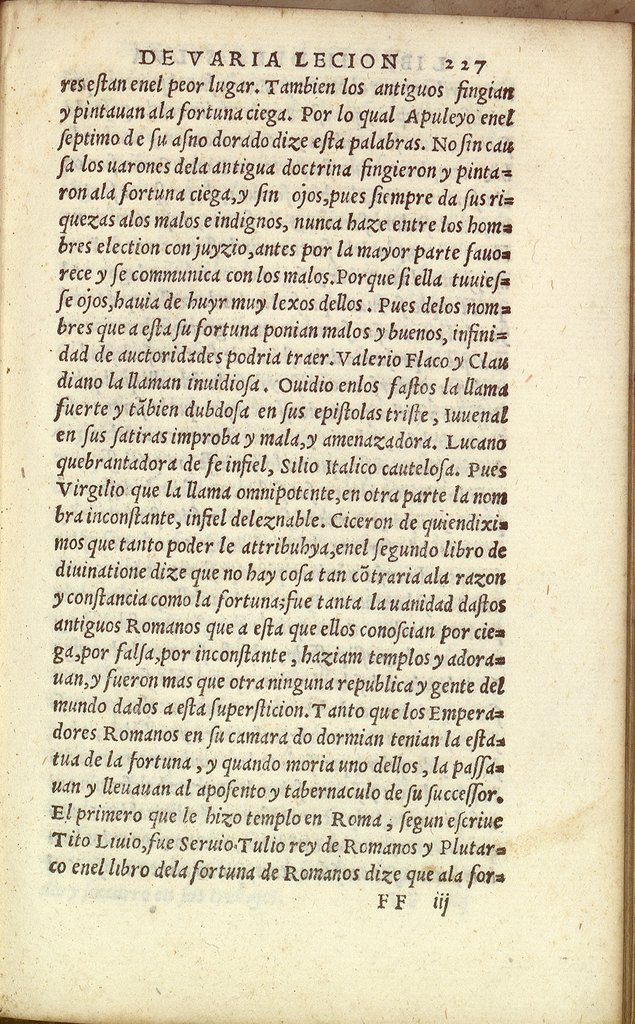 DE VARIA LECION 227
res estan enel peor lugar. Tambien los antiguos fingian
y pintauan ala fortuna ciega. Por lo qual Apuleyo enel
septimo de su asno dorado dize esta palabras. No sin cau
sa los uarones dela antigua doctrina fingieron y pinta=
ron ala fortuna ciega,y sin ojos,pues siempre da sus ri=
quezas alos malos e indignos, nunca haze entre los hom=
bres election con juyzio,antes por la mayor parte fauo=
rece y se communica con los malos.Porque si ella tuuies=
se ojos,hauia de huyr muy lexos dellos. Pues delos nom=
bres que a esta su fortuna ponian malos y buenos, infini=
dad de auctoridades podria traer.Valerio Flaco y Clau
diano la llaman inuidiosa. Ouidio enlos fastos la llama
fuerte y tābien dubdosa en sus epistolas triste, Iuuenal
en sus satiras improba y mala,y amenazadora. Lucano
quebrantadora de fe infiel, Silio Italico cautelosa. Pues
Virgilio que la llama omnipotente,en otra parte la nom
bra inconstante, infiel deleznable. Ciceron de quiendixi=
mos que tanto poder le attribuhya,enel segundo libro de
diuinatione dize que no hay cosa tan cōtraria ala razon
y constancia como la fortuna;fue tanta la uanidad dastos
antiguos Romanos que a esta que ellos conoscian por cie=
ga,por falsa,por inconstante, haziam templos y adora=
uan,y fueron mas que otra ninguna republica y gente del
mundo dados a esta supersticion.Tanto que los Empera=
dores Romanos en su camara do dormian tenian la esta=
tua de la fortuna, y quando moria uno dellos, la passa=
uan y lleuauan al aposento y tabernaculo de su successor.
El primero que le hizo templo en Roma, segun escriue
Tito Liuio,fue Seruio Tulio rey de Romanos y Plutar=
co enel libro dela fortuna de Romanos dize que ala for=
FF iij